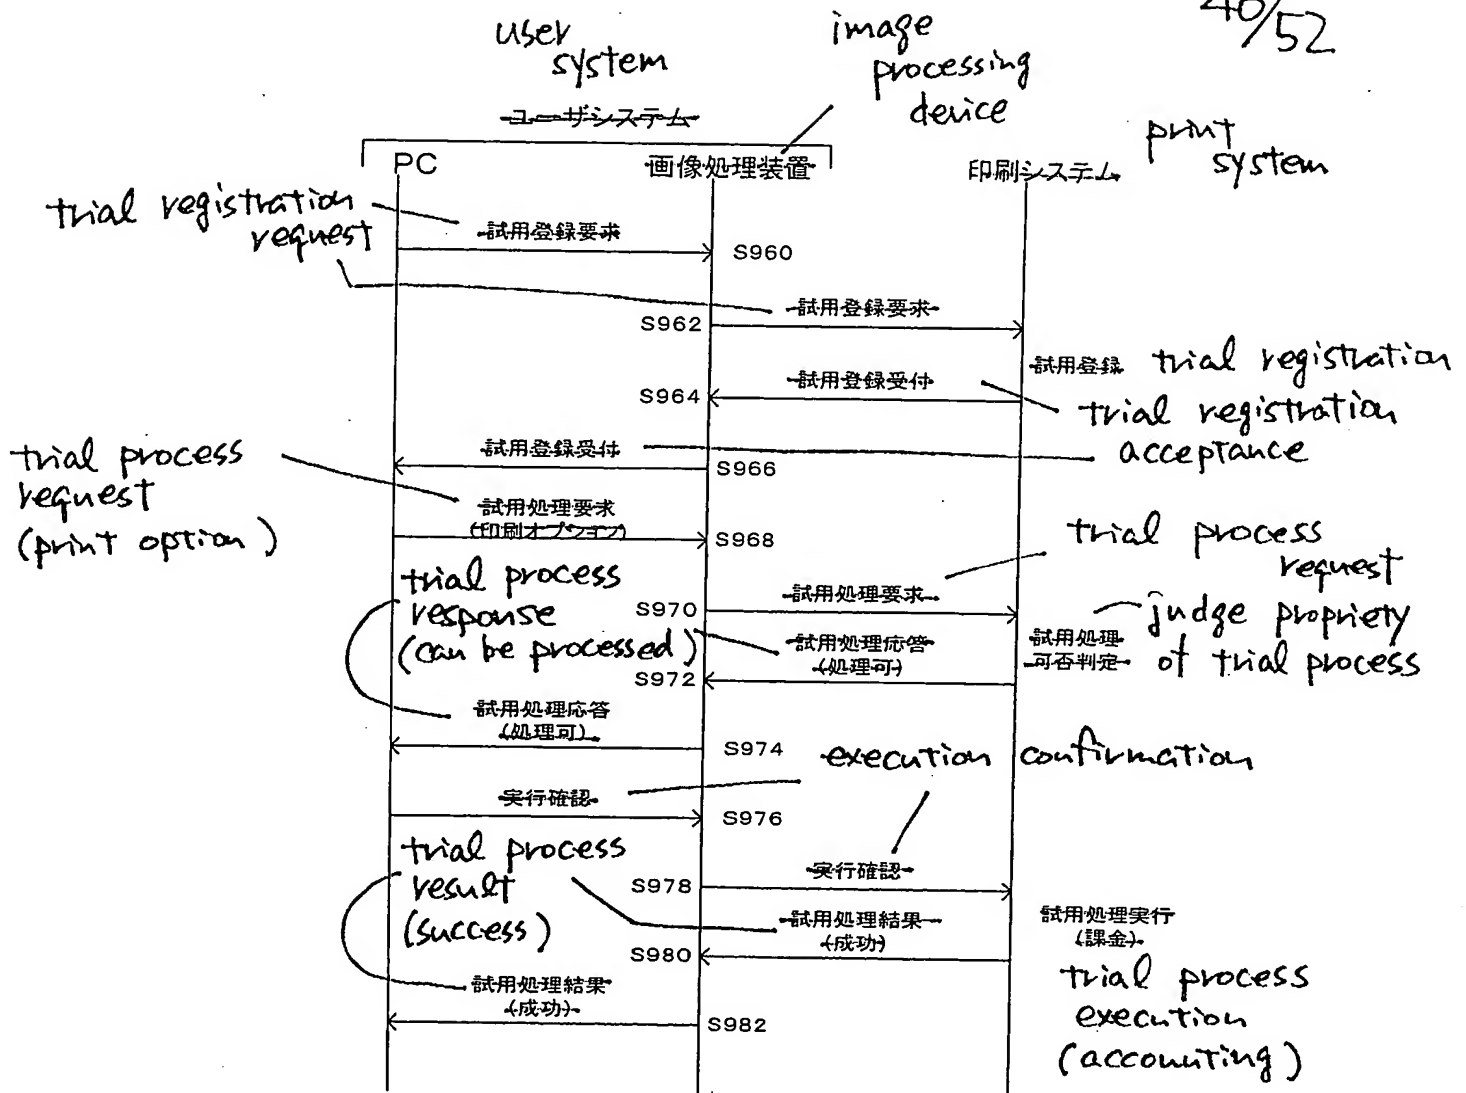 40/52
user
system
image
processing
device
ユーザシステム
print
system
PC
画像処理装置
印刷システム
trial registration
request
試用登録要求
S960
試用登録要求
S962
試用登録
trial registration
試用登録受付
S964
trial registration
acceptance
試用登録受付
S966
trial process
request
(print option)
試用処理要求
(印刷オプション)
S968
trial process
request
試用処理要求
S970
trial process
response
(can be processed)
judge propriety
of trial process
試用処理
可否判定
試用処理応答
(処理可)
S972
試用処理応答
(処理可)
S974
execution confirmation
実行確認
S976
実行確認
S978
trial process
result
(success)
試用処理結果
(成功)
S980
試用処理実行
(課金)
trial process
execution
(accounting)
試用処理結果
(成功)
S982